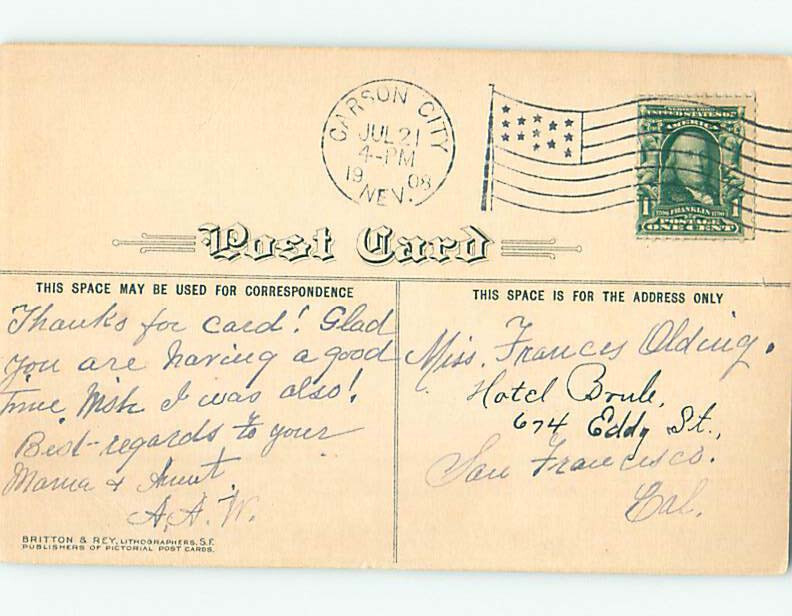 CARSON CITY
JUL 21
4-PM
1908
NEV.
SERIES 1902
UNITED STATES OF
AMERICA
1 FRANKLIN 1
POSTAGE
ONE CENT
Post Card
THIS SPACE MAY BE USED FOR CORRESPONDENCE
Thanks for card! Glad
you are having a good
time. Wish I was also!
Best-regards to your
Mama & Aunt.
A. A. W.
BRITTON & REY, LITHOGRAPHERS, S.F.
PUBLISHERS OF PICTORIAL POST CARDS.
THIS SPACE IS FOR THE ADDRESS ONLY
Miss. Frances Olding.
Hotel
674 Eddy St.,
San Francisco.
Cal.